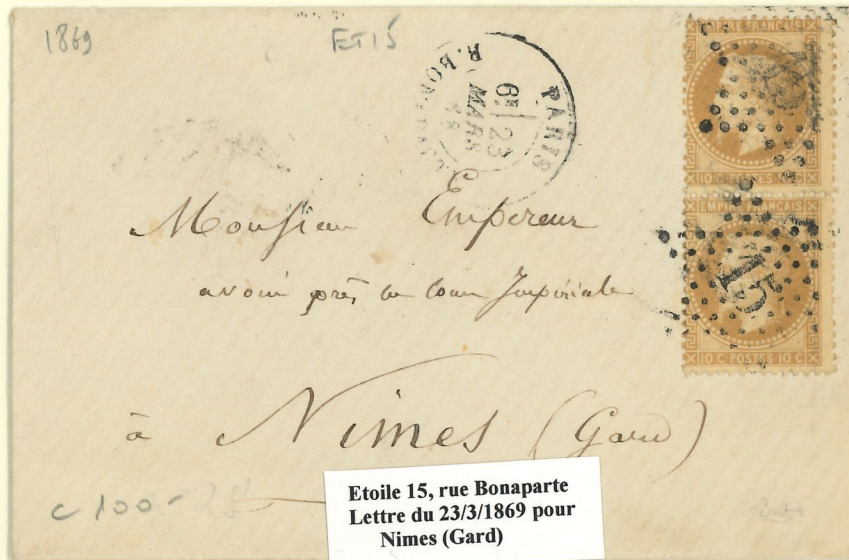 1869
ET15
PARIS
R. BONAPARTE
6E 23
MARS
EMPIRE FRANÇAIS
10 C POSTES 10 C
EMPIRE FRANÇAIS
15
10 C POSTES 10 C
Monsieur Empereur
avoué près la Cour Impériale
à Nimes (Gard)
c 100-
Etoile 15, rue Bonaparte
Lettre du 23/3/1869 pour
Nimes (Gard)